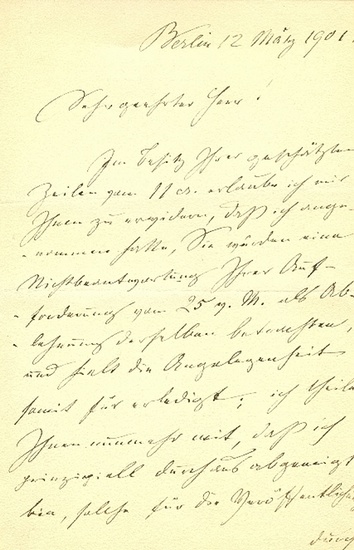 Berlin 12 März 1901.
Sehr geehrter Herr!
Im Besitz Ihrer geschätzten
Zeilen vom 11 cr. erlaube ich mir
Ihnen zu erwidern, daß ich ange-
-nommen hatte, Sie würden eine
Nichtbeantwortung Ihrer Auf-
-forderung vom 25 v. M. als Ab-
-lehnung derselben betrachten,
und hielt die Angelegenheit
somit für erledigt; ich theile
Ihnen nunmehr mit, daß ich
prinzipiell durchaus abgeneigt
bin, solche für die Veröffentlichung
durch